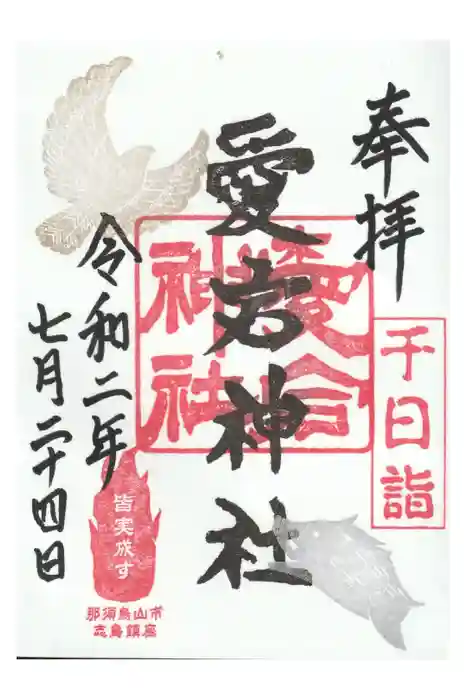 奉拝
千日詣
愛宕神社
愛宕神社
令和二年
七月二十四日
皆実成す
那須烏山市
志鳥鎮座